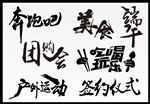 奔跑吧
美食
端午
团购会
户外运动
签约仪式